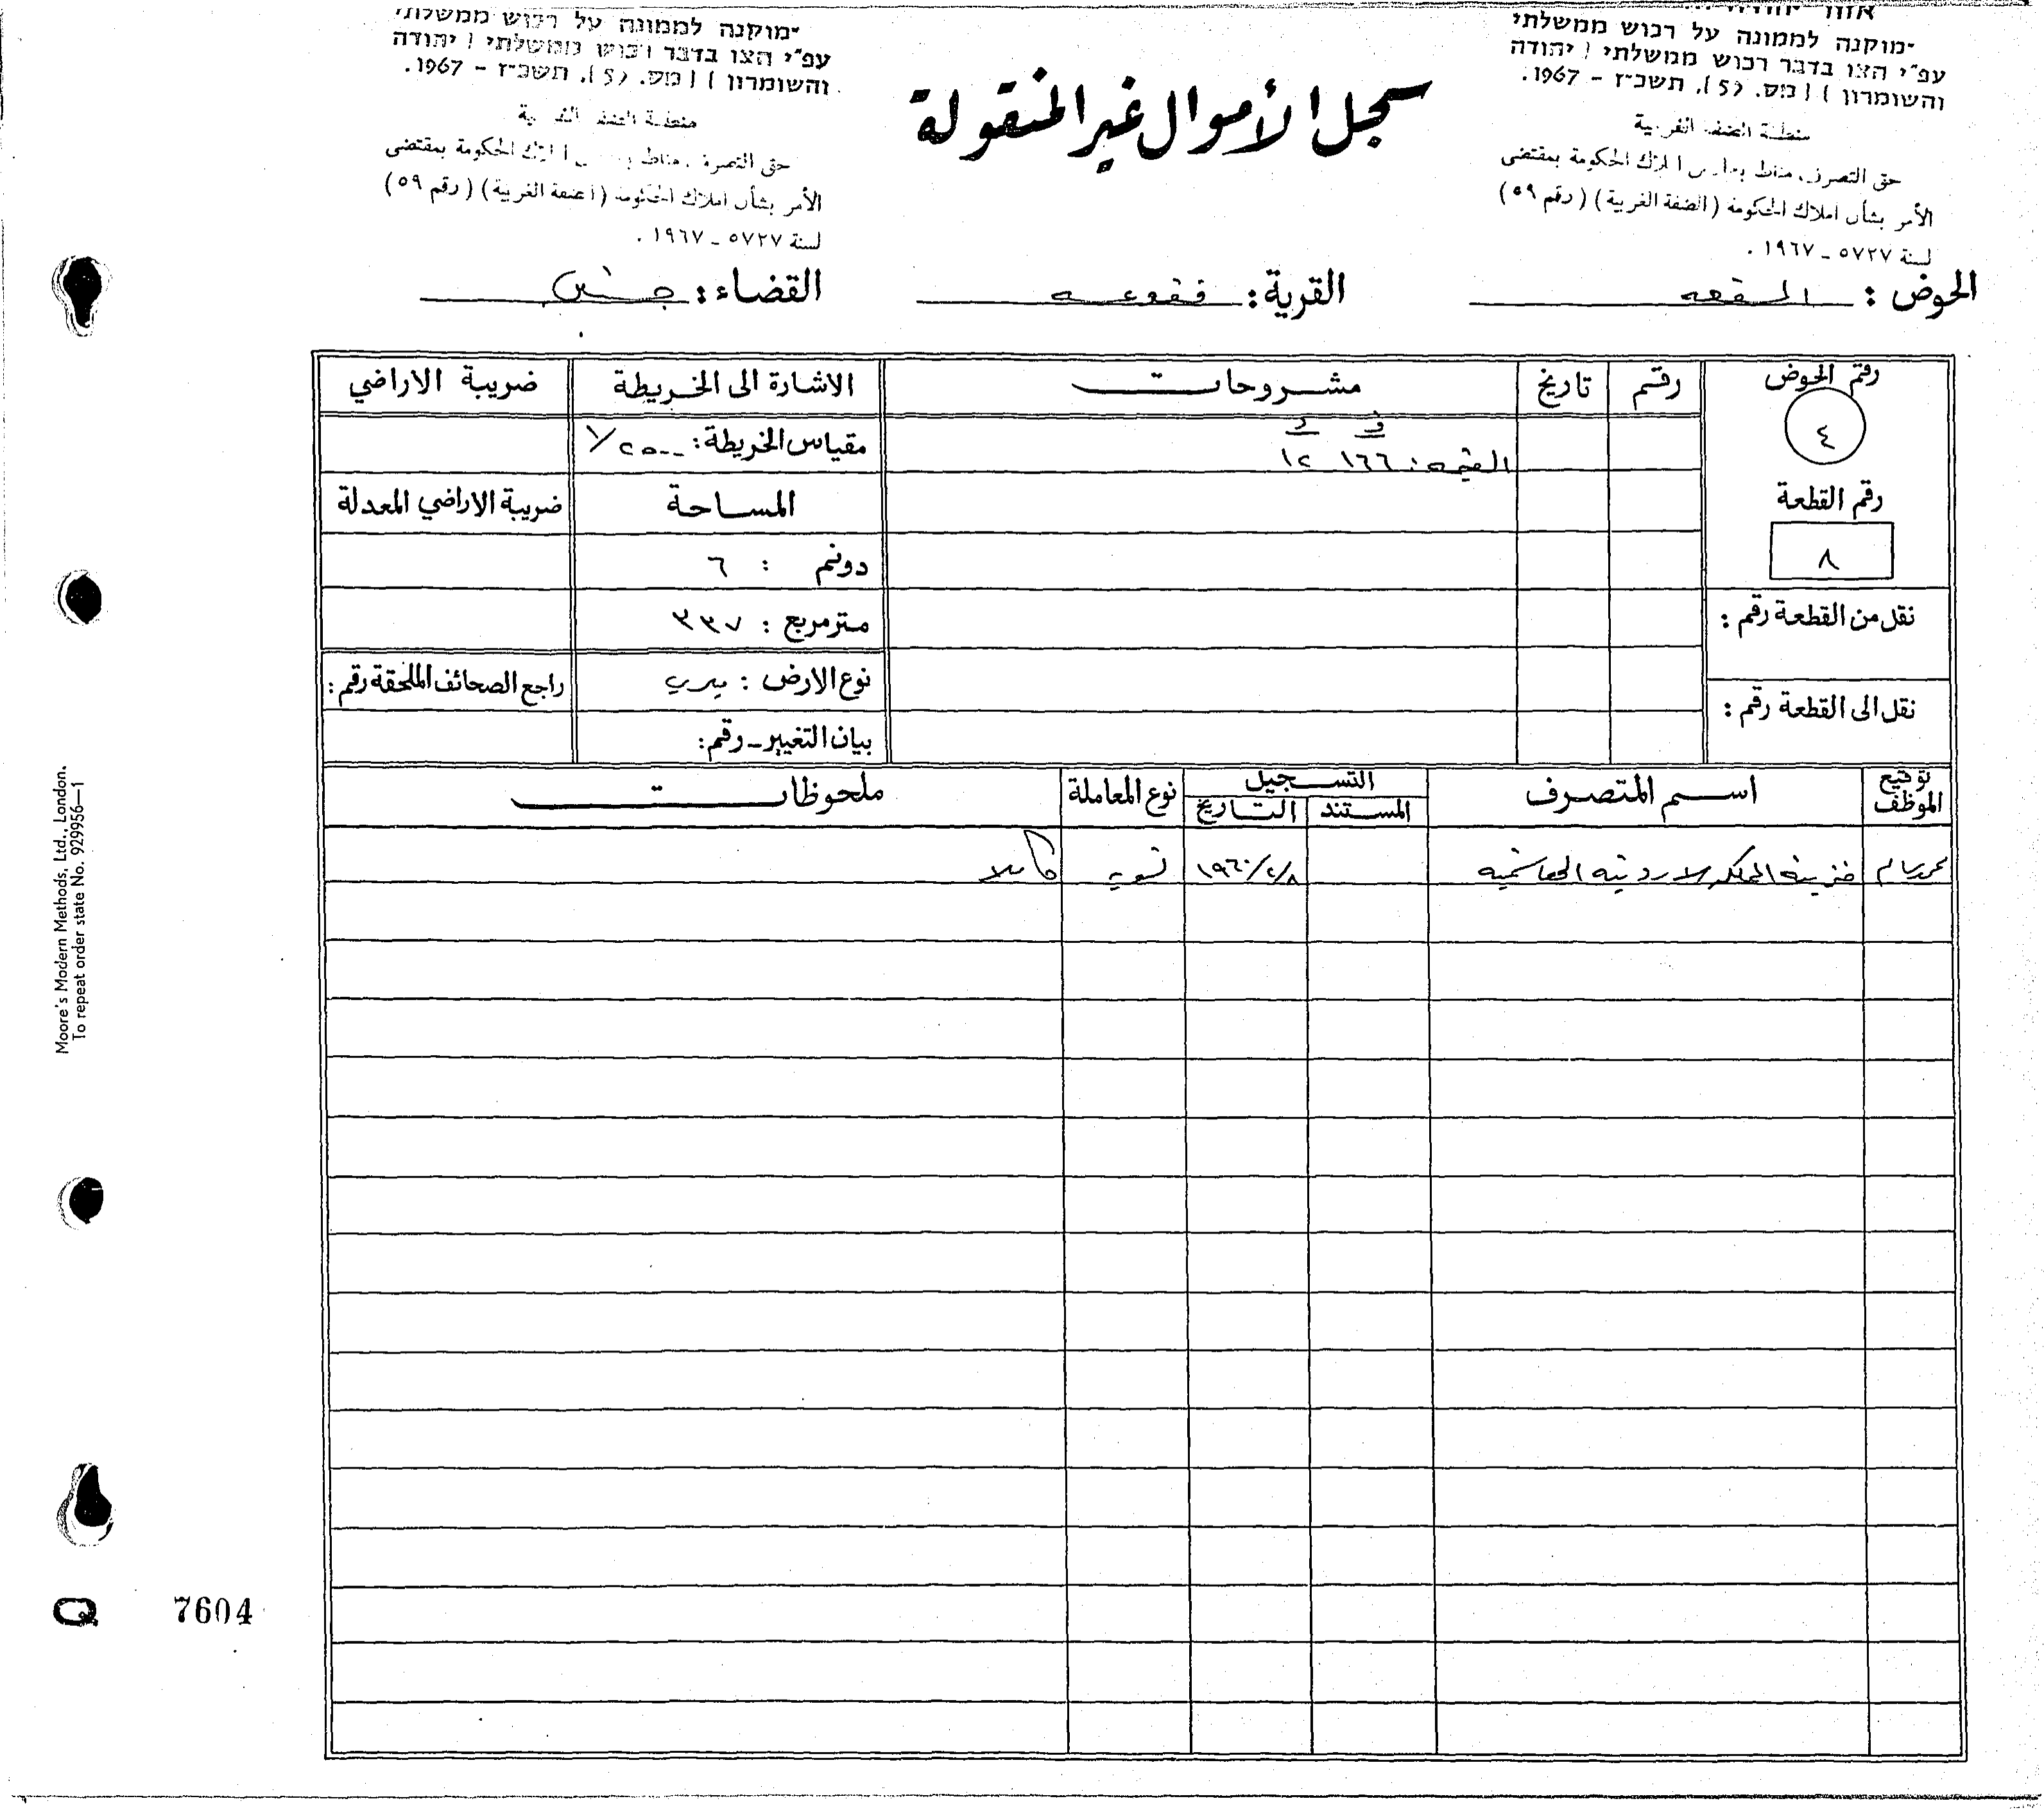 מוקנה לממונה על רכוש ממשלתי
עפ"י הצו בדבר רכוש ממשלתי ( יהודה
והשומרון ) ( מס. 59 ), תשכ"ז - 1967.
منطقة الضفة الغربية
حق التصرف مناط بحارس املاك الحكومة بمقتضى
الأمر بشأن املاك الحكومة (الضفة الغربية) (رقم ٥٩)
لسنة ٥٧٢٧ - ١٩٦٧ .
سجل الأموال غير المنقولة
מוקנה לממונה על רכוש ממשלתי
עפ"י הצו בדבר רכוש ממשלתי ( יהודה
והשומרון ) ( מס. 59 ), תשכ"ז - 1967.
منطقة الضفة الغربية
حق التصرف مناط املاك الحكومة بمقتضى
الأمر بشأن املاك الحكومة (الضفة الغربية) (رقم ٥٩)
لسنة ٥٧٢٧ - ١٩٦٧ .
الحوض : القرية: فقوعه القضاء: جنين
رقم الحوض رقم تاريخ مشروحات الاشارة الى الخريطة ضريبة الاراضي
٤
ف د
القيمه: ١٦٦ ١٢
مقياس الخريطة: ١/٢٥٠٠
رقم القطعة
٨
المساحة ضريبة الاراضي المعدلة
دونم : ٦
نقل من القطعة رقم :
متر مربع : ٣٣٧
نوع الارض : ميري راجع الصحائف الملحقة رقم :
نقل الى القطعة رقم :
بيان التغيير - رقم:
توقيع الموظف اسم المتصرف التسجيل نوع المعاملة ملحوظات
المستند التاريخ
خزينة المملكه الاردنيه الهاشميه ١٩٦٠/٢/٨ تسويه كاملا
Moore's Modern Methods, Ltd., London.
To repeat order state No. 929956—1
Q 7604